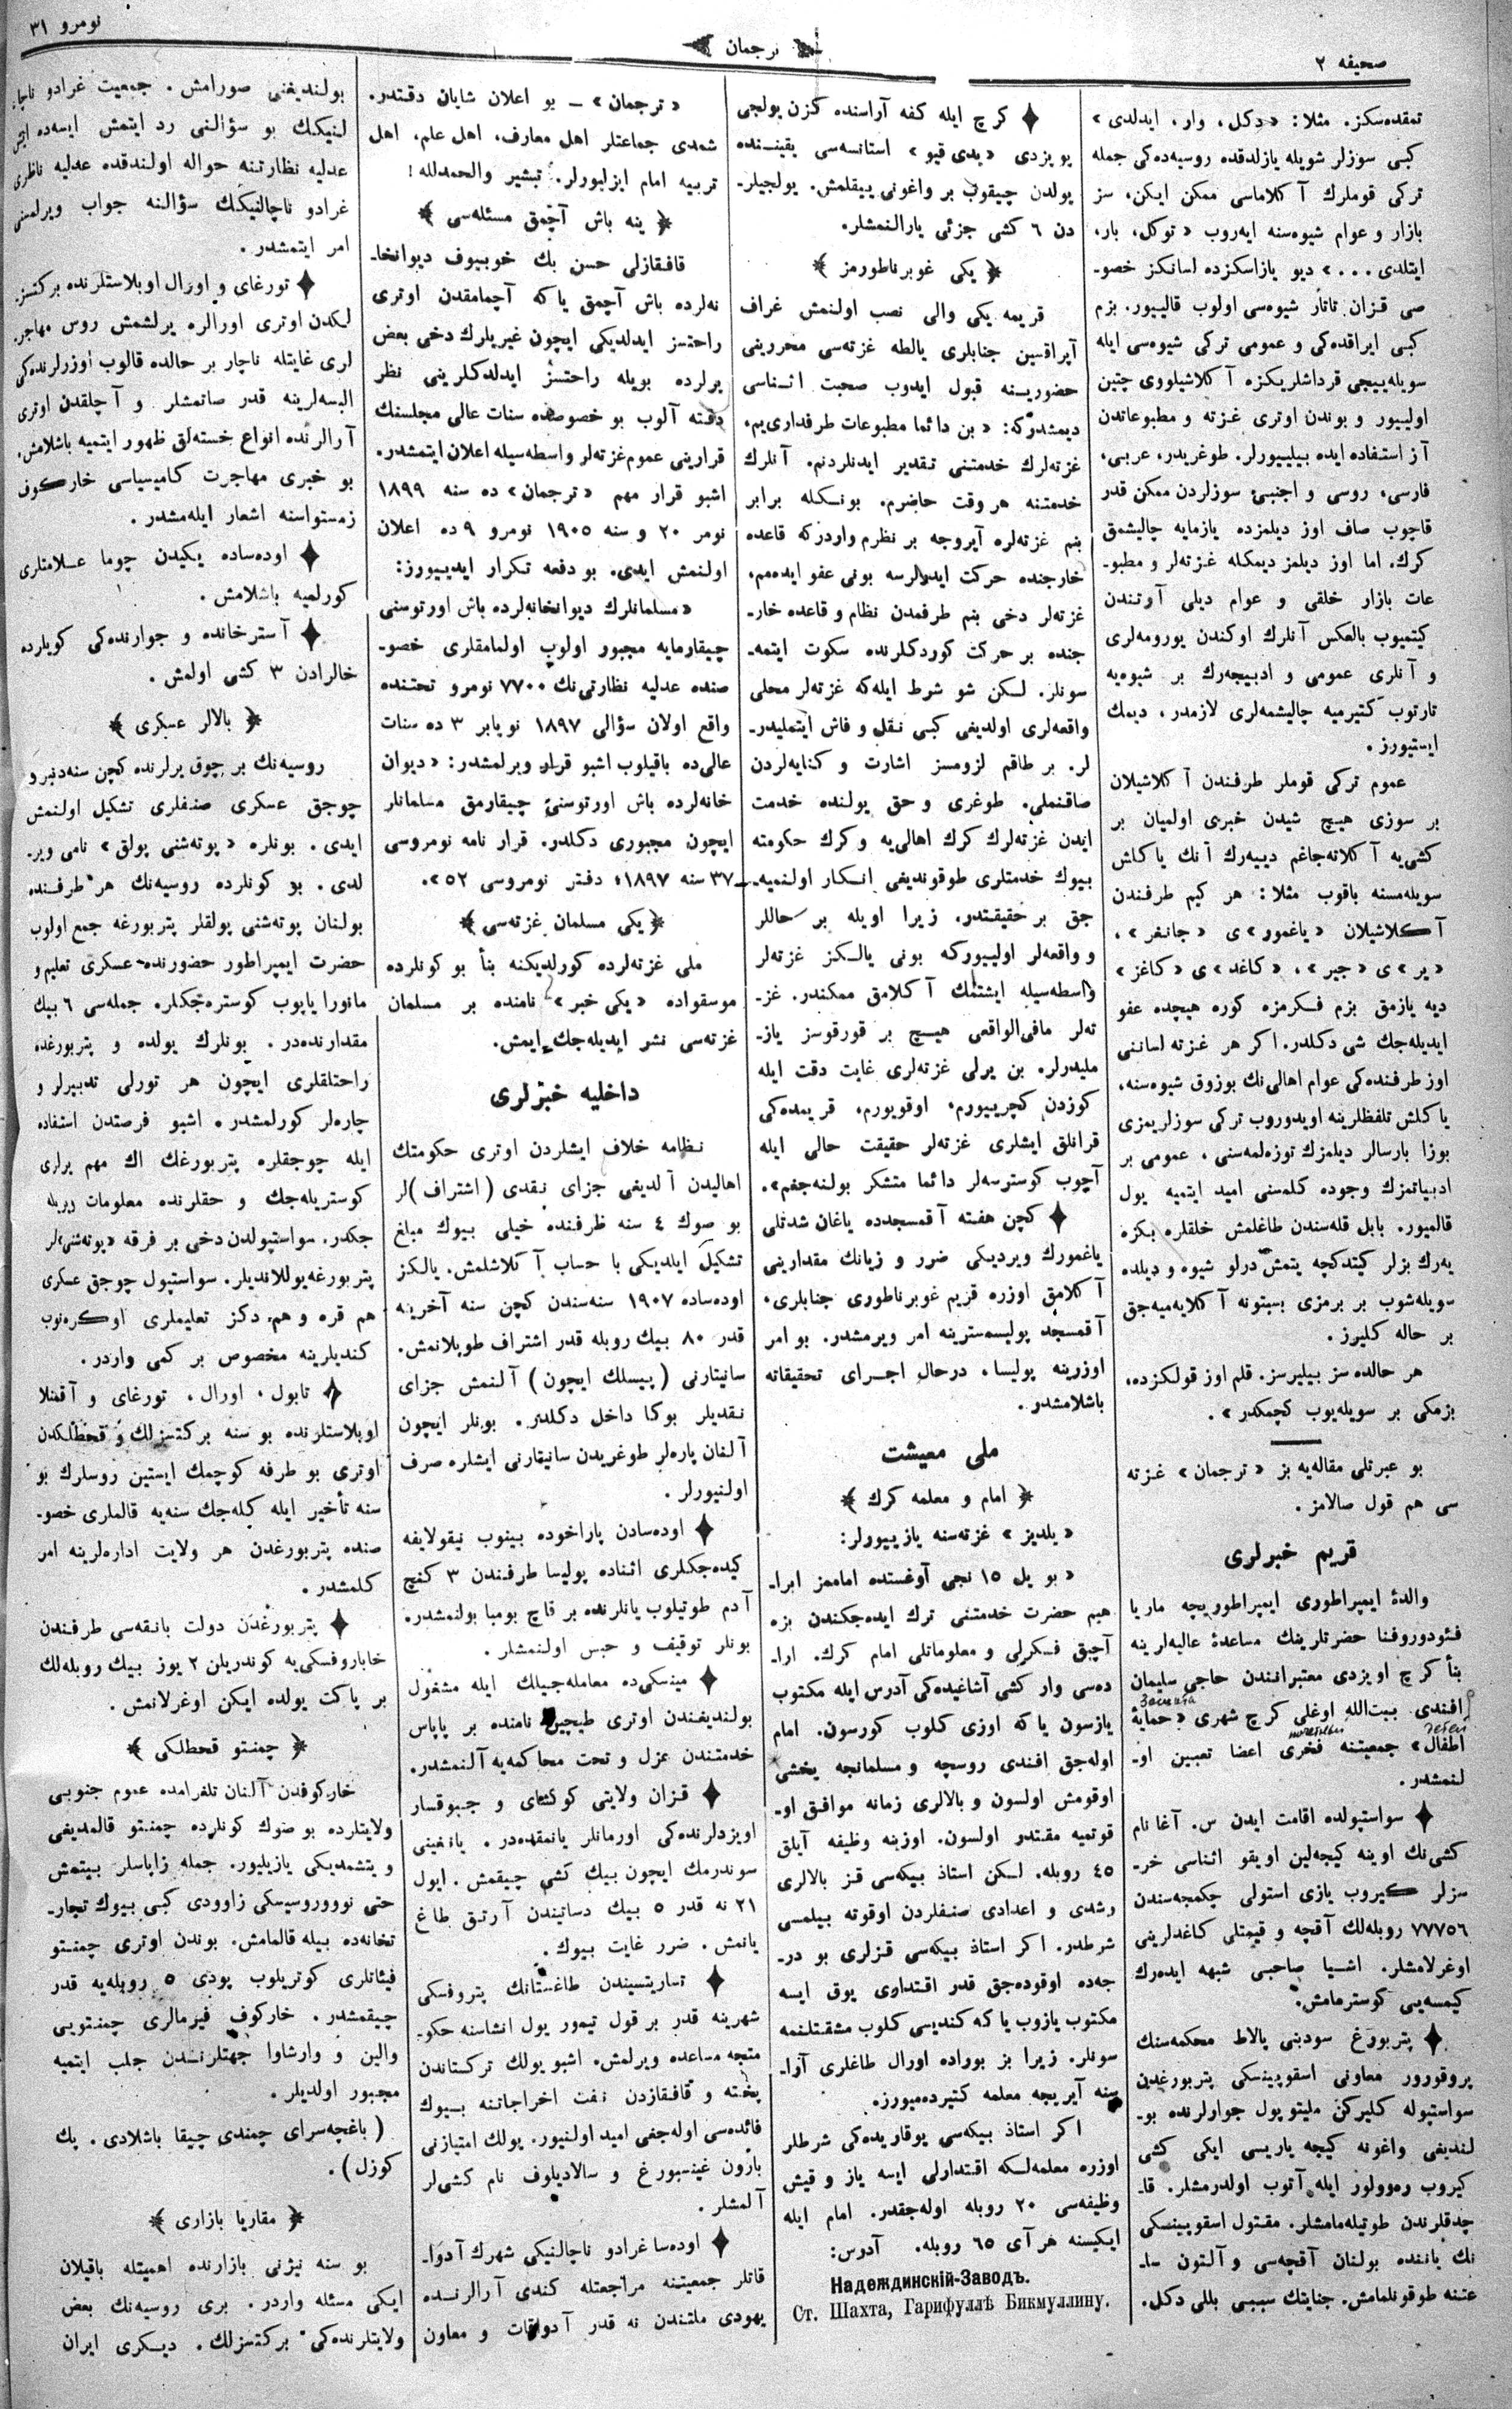 صحیفه ٢
ترجمان
نومرو ٣١
تمقده‌سكز. مثلا: «دكل، وار، ایدلدی»
كبی سوزلر شویله یازلدقده روسیه‌ده‌كی جمله
تركی قوملرك آكلاماسی ممكن ایكن، سز
بازار و عوام شیوه‌سنه ایه‌روب «توكل، بار،
ایتلدی...» دیو یازاسكزده لسانكز خصو-
صی قزان تاتار شیوه‌سی اولوب قالیبور. بزم
كبی ایراقده‌كی و عمومی تركی شیوه‌سی ایله
سویله‌ییجی قرداشلریكزه آكلاشیلووی چتین
اولیبور و بوندن اوتری غزته و مطبوعاتدن
آز استفاده ایده بیلیبورلر. طوغریدر، عربی،
فارسی، روسی و اجنبی سوزلردن ممكن قدر
قاچوب صاف اوز دیلمزده یازمایه چالیشمق
كرك. اما اوز دیلمز دیمكله غزته‌لر و مطبو-
عات بازار خلقی و عوام دیلی آرتندن
كیتمیوب بالعكس آنلرك اوكندن یورومه‌لری
و آنلری عمومی و ادبیجه‌رك بر شیوه‌یه
تارتوب كتیرمیه چالیشمه‌لری لازمدر، دیمك
ایستیورز.
عموم تركی قوملر طرفندن آكلاشیلان
بر سوزی هیچ شیدن خبری اولمیان بر
كشی‌یه آكلاته‌جاغم دییه‌رك آنك یاكلش
سویله‌مسنه باقوب مثلا: هر كیم طرفندن
آكلاشیلان «یاغمور»ی «جانغر»،
«یر»ی «جیر»، «كاغد»ی «كاغز»
دیه یازمق بزم فكرمزه كوره هیچده عفو
ایدیله‌جك شی دكلدر. اكر هر غزته لساننی
اوز طرفنده‌كی عوام اهالی‌نك بوزوق شیوه‌سنه،
یاكلش تلفظلرینه اویدوروب تركی سوزلریمزی
بوزا بارسالر دیلمزك توزه‌لمه‌سنی، عمومی بر
ادبیاتمزك وجوده كلمسنی امید ایتمیه یول
قالمیور. بابل قله‌سندن طاغلمش خلقلره بكزه
یه‌رك بزلر كیتدكچه یتمش درلو شیوه و دیلده
سویله‌شوب بر برمزی بستونه آكلایه‌میه‌جق
بر حاله كلیرز.
هر حالده سز بیلیرسز. قلم اوز قولكزده،
بزمكی بر سویله‌یوب كچمكدر».
بو عبرتلی مقاله‌یه بز «ترجمان» غزته
سی هم قول صالامز.
قریم خبرلری
والدهٔ ایمپراطوری ایمپراطوریچه ماریا
فئودوروفنا حضرتلرینك مساعدهٔ عالیه‌لرینه
بنأ كرچ اویزدی معتبرانندن حاجی سلیمان
افندی بیت‌الله اوغلی كرچ شهری «حمایهٔ
اطفال» جمعیتنه فخری اعضا تعیین او-
لنمشدر.
سواستپولده اقامت ایدن س. آغا نام
كشی‌نك اوینه كیجه‌لین اویقو اثناسی خر-
سزلر كیروب یازی استولی چكمجه‌سندن
٧٧٧٥٦ روبله‌لك آقچه و قیمتلی كاغدلرینی
اوغرلامشلر. اشیا صاحبی شبهه ایده‌رك
كیمسه‌یی كوسترمامش.
پتربورغ سودبنی پالاط محكمه‌سنك
پروقورور معاونی اسقوپینسكی پتربورغدین
سواستپوله كلیركن ملیتوپول جوارلرنده بو-
لندیغی واغونه كیجه یاریسی ایكی كشی
كیروب ره‌وولور ایله آتوب اولدرمشلر. قا-
چدقلرندن طوتیله‌مامشلر. مقتول اسقوپینسكی
نك یاننده بولنان آقچه‌سی و آلتون سا-
عتنه طوقونلمامش. جنایتك سببی بللی دكل.
كرچ ایله كفه آراسنده كزن پولجی
پویزدی «یدی قیو» استانسه‌سی یقیننده
یولدن چیقوب بر واغونی ییقلمش. یولجیلر-
دن ٦ كشی جزئی یارالنمشلر.
یكی غوبرناطورمز
قریمه یكی والی نصب اولنمش غراف
آپراقسین جنابلری یالطه غزته‌سی محررینی
حضورینه قبول ایدوب صحبت اثناسی
دیمشدركه: «بن دائما مطبوعات طرفداری‌یم.
غزته‌لرك خدمتنی تقدیر ایدنلردنم. آنلرك
خدمتنه هر وقت حاضرم. بونكله برابر
بنم غزته‌لره آیروجه بر نظرم واردركه قاعده
خارجنده حركت ایدیلرسه بونی عفو ایده‌مم.
غزته‌لر دخی بنم طرفمدن نظام و قاعده خار-
جنده بر حركت كوردكلرنده سكوت ایتمه-
سونلر. لكن شو شرط ایله‌كه غزته‌لر محلی
واقعه‌لری اولدیغی كبی نقل و فاش ایتملیدر-
لر. بر طاقم لزومسز اشارت و كنایه‌لردن
صاقنملی. طوغری و حق یولنده خدمت
ایدن غزته‌لرك كرك اهالی‌یه و كرك حكومته
بیوك خدمتلری طوقوندیغی انكار اولنمیه-
جق بر حقیقتدر. زیرا اویله بر حاللر
و واقعه‌لر اولیبوركه بونی یالكز غزته‌لر
واسطه‌سیله ایشتمك آكلامق ممكندر. غز-
ته‌لر مافی‌الواقعی هیچ بر قورقوسز یاز-
ملیدرلر. بن یرلی غزته‌لری غایت دقت ایله
كوزدن كچرییورم. اوقویورم. قریمده‌كی
قرانلق ایشلری غزته‌لر حقیقت حالی ایله
آچوب كوسترسه‌لر دائما متشكر بولنه‌جغم».
كچن هفته آقمسجدده یاغان شدتلی
یاغمورك ویردیكی ضرر و زیانك مقدارینی
آكلامق اوزره قریم غوبرناطوری جنابلری،
آقمسجد پولیسمسترینه امر ویرمشدر. بو امر
اوزرینه پولیسا، درحال اجرای تحقیقاته
باشلامشدر.
ملی معیشت
امام و معلمه كرك
«یلدیز» غزته‌سنه یازییورلر:
«بو یل ١٥ نجی آوغستده اماممز ابرا-
هیم حضرت خدمتنی ترك ایده‌جكندن بزه
آچیق فكرلی و معلوماتلی امام كرك. ارا-
ده‌سی وار كشی آشاغیده‌كی آدرس ایله مكتوب
یازسون یاكه اوزی كلوب كورسون. امام
اوله‌جق افندی روسچه و مسلمانجه یخشی
اوقومش اولسون و بالالری زمانه موافق او-
قوتمیه مقتدر اولسون. اوزینه وظیفه آیلق
٤٥ روبله. لكن استاذ بیكه‌سی قز بالالری
رشدی و اعدادی صنفلردن اوقوته بیلمسی
شرطدر. اكر استاذ بیكه‌سی قزلری بو در-
جه‌ده اوقوده‌جق قدر اقتداری یوق ایسه
مكتوب یازوب یاكه كندیسی كلوب مشقتلنمه
سونلر. زیرا بز بوراده اورال طاغلری آرا-
سنه آیریجه معلمه كتیرده‌میورز.
اكر استاذ بیكه‌سی یوقاریده‌كی شرطلر
اوزره معلمه‌لكه اقتدارلی ایسه یاز و قیش
وظیفه‌سی ٢٠ روبله اوله‌جقدر. امام ایله
ایكیسنه هر آی ٦٥ روبله. آدرس:
Надеждинскій-Заводъ.
Ст. Шахта, Гарифуллѣ Бикмуллину.
«ترجمان» — بو اعلان شایان دقتدر.
شمدی جماعتلر اهل معارف، اهل علم، اهل
تربیه امام ایزلیورلر. تبشیر والحمدلله!
ینه باش آچمق مسئله‌سی
قافقازلی حسن بك خوبیوف دیوانخا-
نه‌لرده باش آچمق یاكه آچمامقدن اوتری
راحتسز ایدلدیكی ایچون غیریلرك دخی بعض
یرلرده بویله راحتسز ایدلدكلرینی نظر
دقته آلوب بو خصوصده سنات عالی مجلسنك
قرارینی عموم غزته‌لر واسطه‌سیله اعلان ایتمشدر.
اشبو قرار مهم «ترجمان» ده سنه ١٨٩٩
نومر ٢٠ و سنه ١٩٠٥ نومرو ٩ ده اعلان
اولنمش ایدی. بو دفعه تكرار ایدییورز:
«مسلمانلرك دیوانخانه‌لرده باش اورتوسنی
چیقارمایه مجبور اولوب اولمامقلری خصو-
صنده عدلیه نظارتی‌نك ٧٧٠٠ نومرو تحتنده
واقع اولان سؤالی ١٨٩٧ نویابر ٣ ده سنات
عالی‌ده باقیلوب اشبو قرار ویرلمشدر: «دیوان
خانه‌لرده باش اورتوسنی چیقارمق مسلمانلر
ایچون مجبوری دكلدر. قرار نامه نومروسی
٣٧ سنه ١٨٩٧، دفتر نومروسی ٥٢».
یكی مسلمان غزته‌سی
ملی غزته‌لرده كورلدیكنه بنأ بو كونلرده
موسقواده «یكی خبر» نامنده بر مسلمان
غزته‌سی نشر ایدیله‌جك ایمش.
داخلیه خبرلری
نظامه خلاف ایشلردن اوتری حكومتك
اهالیدن آلدیغی جزای نقدی (اشتراف)لر
بو صوك ٤ سنه ظرفنده خیلی بیوك مبلغ
تشكیل ایلدیكی با حساب آكلاشلمش. یالكز
اوده‌ساده ١٩٠٧ سنه‌سندن كچن سنه آخرینه
قدر ٨٠ بیك روبله قدر اشتراف طوپلانمش.
سانیتارنی (پیسلك ایچون) آلنمش جزای
نقدیلر بوكا داخل دكلدر. بونلر ایچون
آلنان پاره‌لر طوغریدن سانیتارنی ایشلره صرف
اولنیورلر.
اوده‌سادن پاراخوده بینوب نیقولایفه
كیده‌جكلری اثناده پولیسا طرفندن ٣ كنچ
آدم طوتیلوب یانلرنده بر قاچ بومبا بولنمشدر.
بونلر توقیف و حبس اولنمشلر.
مینسكی‌ده معامله‌جیلك ایله مشغول
بولندیغندن اوتری طیچین نامنده بر پاپاس
خدمتندن عزل و تحت محاكمه‌یه آلنمشدر.
قزان ولایتی كوكشای و جبوقسار
اویزدلرنده‌كی اورمانلر یانمقده‌در. یانغینی
سوندرمك ایچون بیك كشی چیقمش. ایول
٢١ نه قدر ٥ بیك دساتیندن آرتق طاغ
یانمش. ضرر غایت بیوك.
تساریتسیندن طاغستانك پتروفسكی
شهرینه قدر بر قول تیمور یول انشاسنه حكو-
متجه مساعده ویرلمش. اشبو یولك تركستاندن
پخته و قافقازدن نفت اخراجاتنه بیوك
فائده‌سی اوله‌جغی امید اولنیور. یولك امتیازنی
بارون غینسبورغ و سالادیلوف نام كشی‌لر
آلمشلر.
اوده‌سا غرادو ناچالنیكی شهرك آدوا-
قاتلر جمعیتنه مراجعتله كندی آرالرنده
یهودی ملتندن نه قدر آدواقات و معاون
بولندیغنی صورامش. جمعیت غرادو ناچا-
لنیكك بو سؤالنی رد ایتمش ایسه‌ده ایش
عدلیه نظارتنه حواله اولندقده عدلیه ناظری
غرادو ناچالنیكك سؤالنه جواب ویرلمسنی
امر ایتمشدر.
تورغای و اورال اوبلاستلرنده بركتسز-
لكدن اوتری اورالره یرلشمش روس مهاجر-
لری غایتله ناچار بر حالده قالوب اوزرلرنده‌كی
البسه‌لرینه قدر صاتمشلر و آچلقدن اوتری
آرالرنده انواع خسته‌لق ظهور ایتمیه باشلامش.
بو خبری مهاجرت كامیسیاسی خاركوف
زمستواسنه اشعار ایله‌مشدر.
اوده‌ساده یكیدن چوما علامتلری
كورلمیه باشلامش.
آسترخانده و جوارنده‌كی كویلرده
خالرادن ٣ كشی اولمش.
بالالر عسكری
روسیه‌نك بر چوق یرلرنده كچن سنه‌دنبرو
چوجق عسكری صنفلری تشكیل اولنمش
ایدی. بونلره «پوته‌شنی پولق» نامی ویر-
لدی. بو كونلرده روسیه‌نك هر طرفنده
بولنان پوته‌شنی پولقلر پتربورغه جمع اولوب
حضرت ایمپراطور حضورنده عسكری تعلیم و
مانورا یاپوب كوستره‌جكلر. جمله‌سی ٦ بیك
مقدارنده‌در. بونلرك یولده و پتربورغده
راحتلقلری ایچون هر تورلی تدبیرلر و
چاره‌لر كورلمشدر. اشبو فرصتدن استفاده
ایله چوجقلره پتربورغك اك مهم یرلری
كوستریله‌جك و حقلرنده معلومات ویریله
جكدر. سواستپولدن دخی بر فرقه «پوته‌شنی»لر
پتربورغه یوللاندیلر. سواستپول چوجق عسكری
هم قره و هم دكز تعلیملری اوكره‌نوب
كندیلرینه مخصوص بر كمی واردر.
تابول، اورال، تورغای و آقمنلا
اوبلاستلرنده بو سنه بركتسزلك و قحطلكدن
اوتری بو طرفه كوچمك ایستین روسلرك بو
سنه تأخیر ایله كله‌جك سنه‌یه قالملری خصو-
صنده پتربورغدن هر ولایت اداره‌لرینه امر
كلمشدر.
پتربورغدن دولت بانقه‌سی طرفندن
خاباروفسكی‌یه كوندریلن ٢ یوز بیك روبله‌لك
بر پاكت یولده ایكن اوغرلانمش.
چمنتو قحطلكی
خاركوفدن آلنان تلغرامده عموم جنوبی
ولایتلرده بو صوك كونلرده چمنتو قالمدیغی
و یتشمدیكی یازیلیور. جمله زاپاسلر بیتمش
حتی نوووروسیسكی زاوودی كبی بیوك تجار-
تخانه‌ده بیله قالمامش. بوندن اوتری چمنتو
فیئاتلری كوتریلوب پودی ٥ روبله‌یه قدر
چیقمشدر. خاركوف فیرمالری چمنتویی
والین و وارشاوا جهتلرندن جلب ایتمیه
مجبور اولدیلر.
(باغچه‌سرای چمندی چیقا باشلادی. پك
كوزل).
مقاریا بازاری
بو سنه نیژنی بازارنده اهمیتله باقیلان
ایكی مسئله واردر. بری روسیه‌نك بعض
ولایتلرنده‌كی بركتسزلك. دیكری ایران